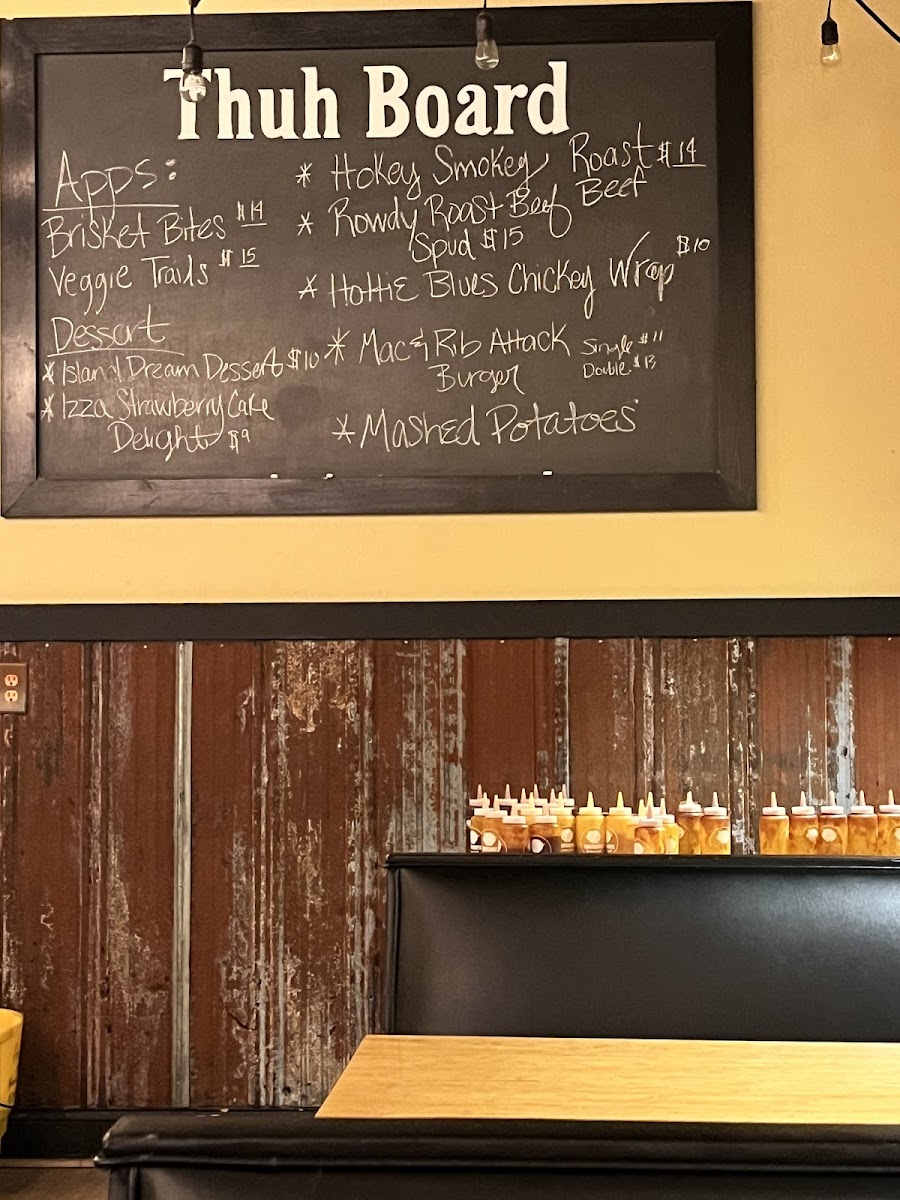 Thuh Board
Apps:
Brisket Bites $14
Veggie Trails $15
Dessart
* Island Dream Dessert $10
* Izza Strawberry Cake
Delight $9
* Hokey Smokey Roast $14
Beef
* Rowdy Roast Beef
Spud $15
* Hottie Blues Chickey Wrap $10
* Mac & Rib Attack
Burger
Single $11
Double $13
* Mashed Potatoes